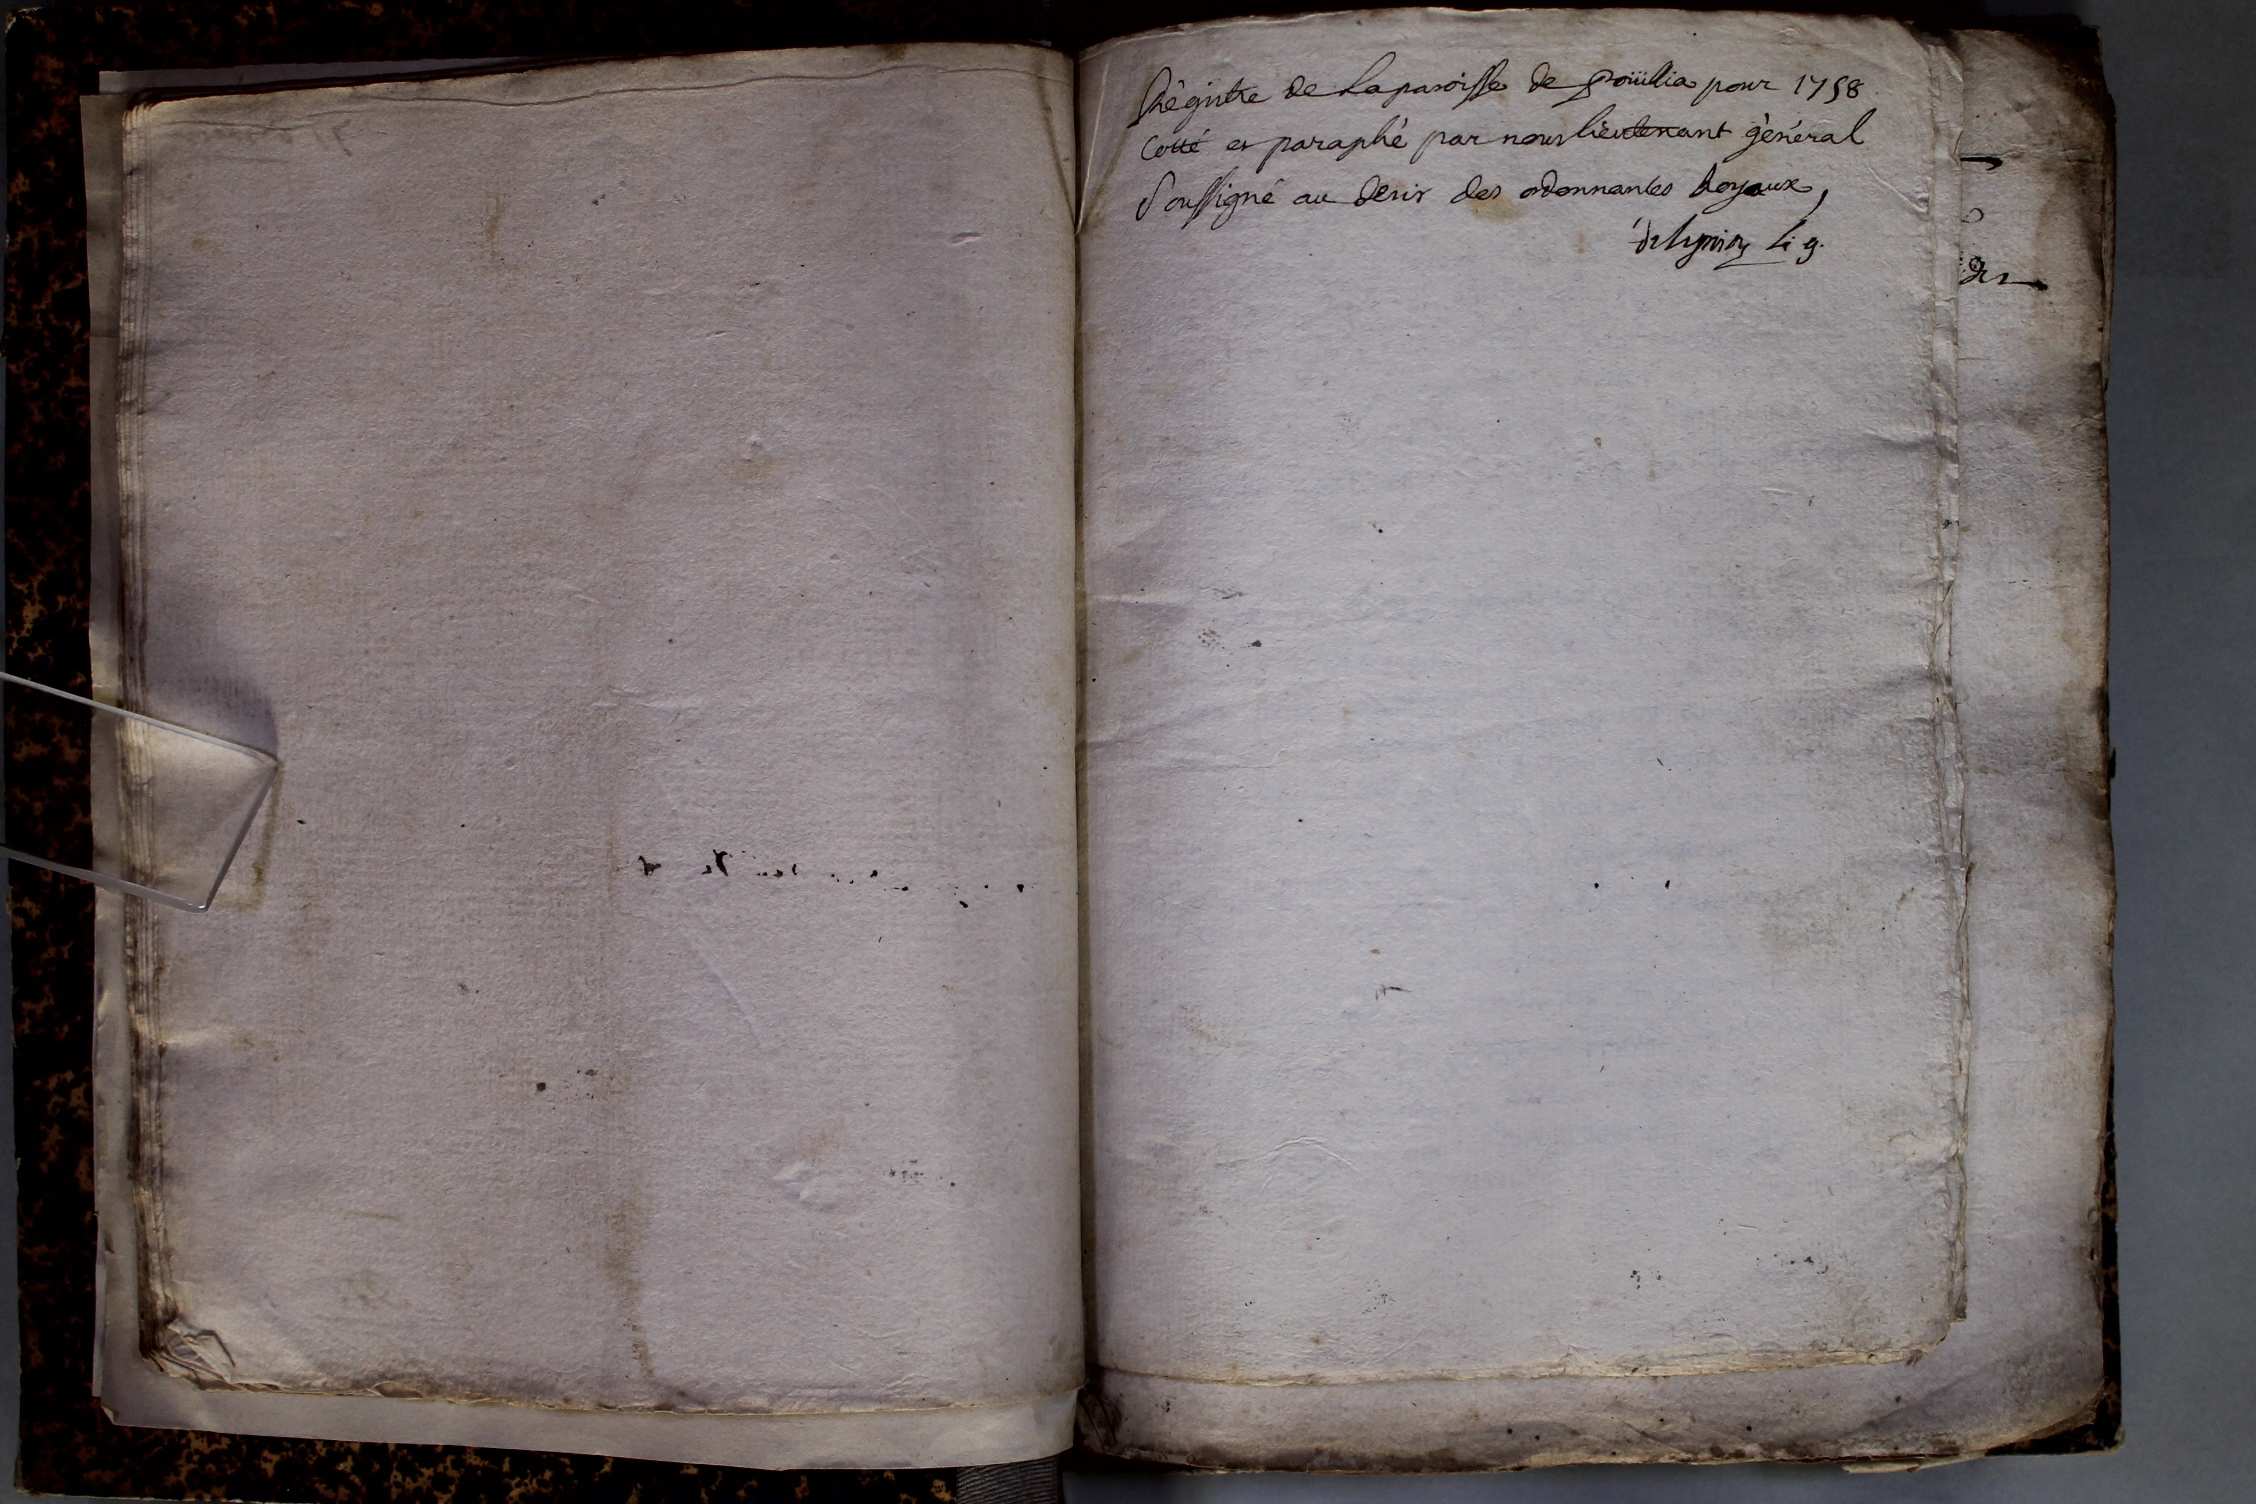 Régistre de la paroisse de poüillia pour 1758.
Cotté et paraphé par nous lieutenant géneral
Soussigné au desir des ordonnances Royaux,
Li g.